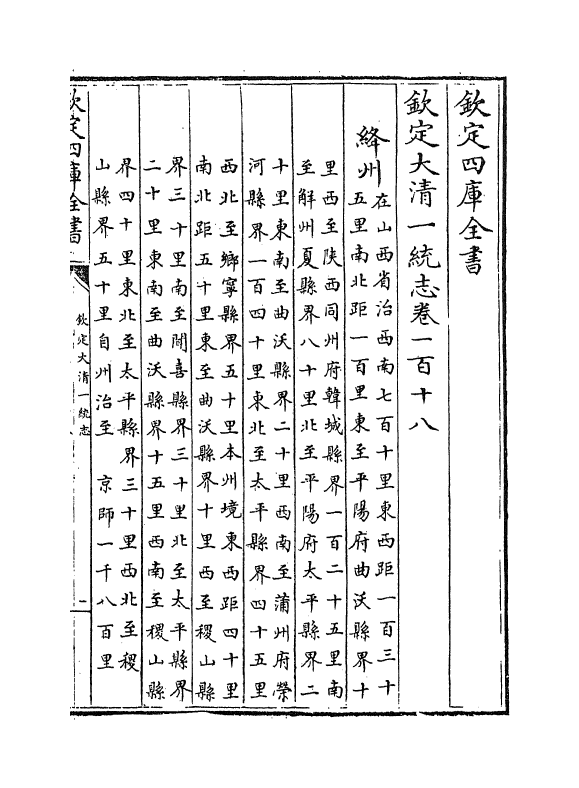 欽定四庫全書
欽定大清一統志卷一百十八
絳州
在山西省治西南七百十里東西距一百三十
五里南北距一百里東至平陽府曲沃縣界十
里西至陜西同州府韓城縣界一百二十五里南
至解州夏縣界八十里北至平陽府太平縣界二
十里東南至曲沃縣界二十里西南至蒲州府榮
河縣界一百四十里東北至太平縣界四十五里
西北至鄉寧縣界五十里本州境東西距四十里
南北距五十里東至曲沃縣界十里西至稷山縣
界三十里南至聞喜縣界三十里北至太平縣界
二十里東南至曲沃縣界十五里西南至稷山縣
界四十里東北至太平縣界三十里西北至稷
山縣界五十里自州治至　京師一千八百里
欽定四庫全書
欽定大清一統志
一